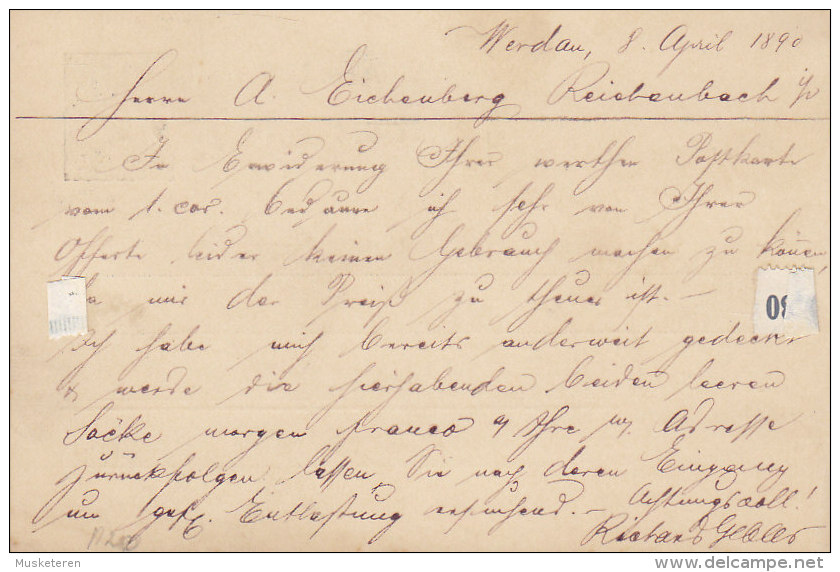 Werdau, 8. April 1890
Herrn A. Eichenberg Reichenbach i/V
In Erwiderung Ihrer werthen Postkarte
vom 1. cor. bedaure ich sehr von Ihrer
Offerte leider keinen Gebrauch machen zu können,
da mir der Preiß zu theuer ist. –
Ich habe mich bereits anderweit gedeckt
& werde die hierhabenden beiden leeren
Säcke morgen franco a/ Ihre w. Adresse
zurückfolgen lassen, Sie nach deren Eingang
um gefl. Entlastung ersuchend. – Achtungsvoll!
Richard
80
Musketeren
delcampe.net